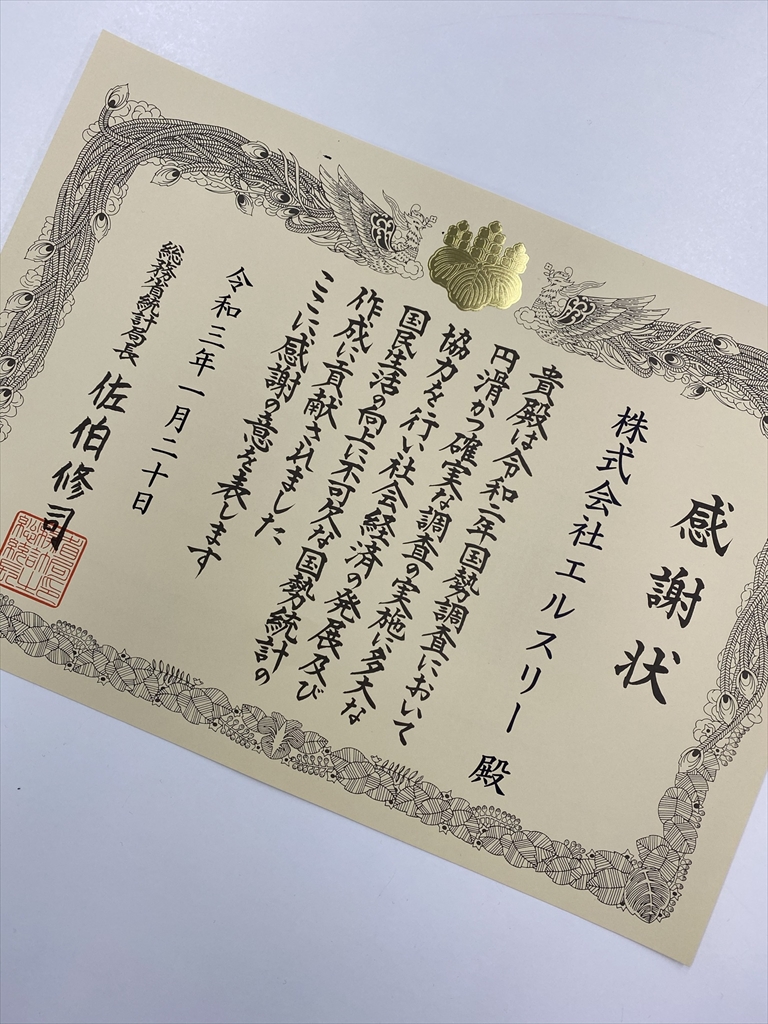 感謝状
株式会社エルスリー 殿
貴殿は令和二年国勢調査において
円滑かつ確実な調査の実施に多大な
協力を行い社会経済の発展及び
国民生活の向上に不可欠な国勢統計の
作成に貢献されました
ここに感謝の意を表します
令和三年一月二十日
総務省統計局長 佐伯修司